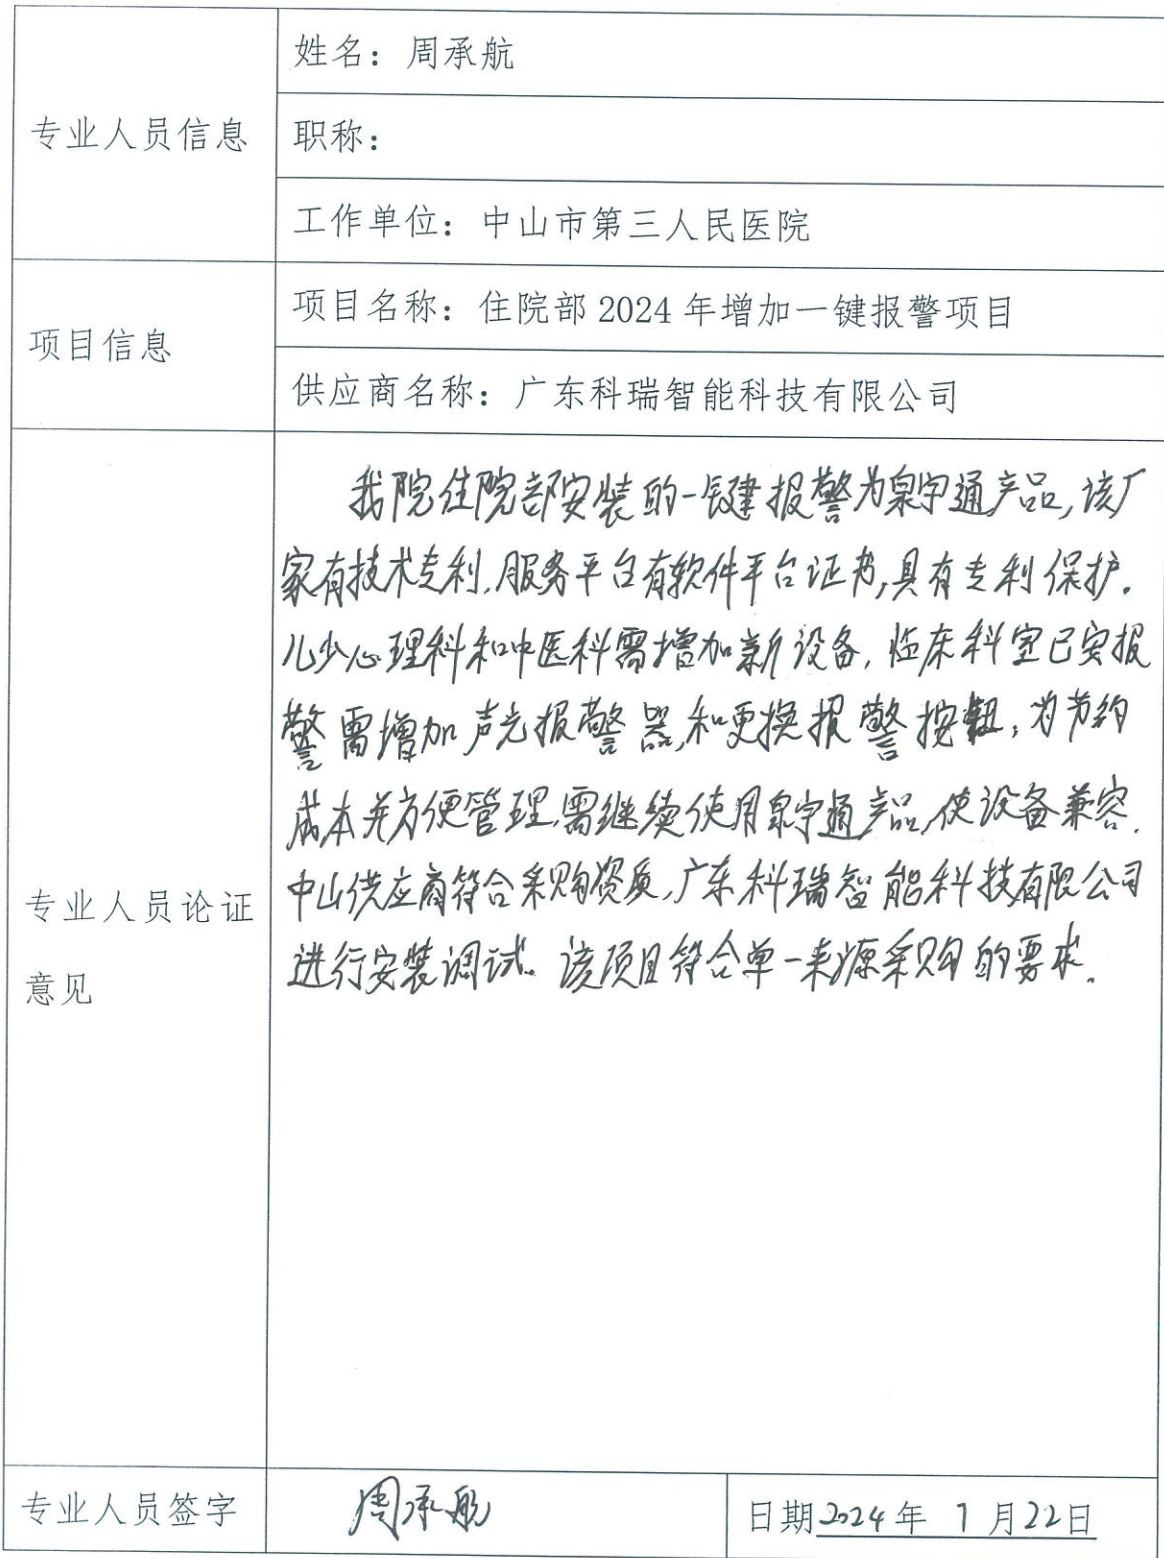 专业人员信息
姓名：周承航
职称：
工作单位：中山市第三人民医院
项目信息
项目名称：住院部 2024 年增加一键报警项目
供应商名称：广东科瑞智能科技有限公司
专业人员论证
意见
我院住院部安装的一键报警为泉宇通产品,该厂
家有技术专利,服务平台有软件平台证书,具有专利保护.
儿少心理科和中医科需增加新设备,临床科室已安报
警需增加声光报警器,和更换报警按钮,为节约
成本并方便管理,需继续使用泉宇通产品,使设备兼容.
中山供应商符合采购资质,广东科瑞智能科技有限公司
进行安装调试.该项目符合单一来源采购的要求.
专业人员签字
周承航
日期2024年 7月22日